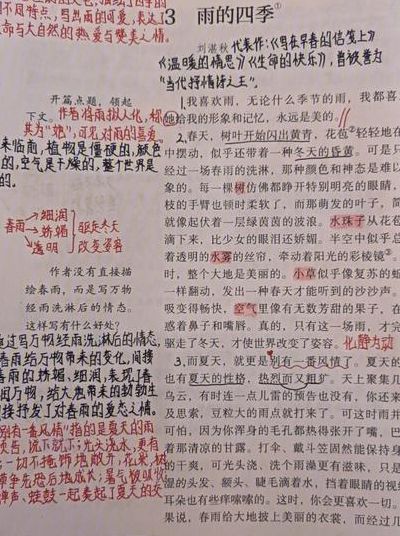 3 雨的四季①
刘湛秋 代表作:《写在早春的信笺上》
《温暖的情思》《生命的快乐》,曾被誉为
“当代抒情诗之王”。
不同特点,写出雨的可爱,表达了
命与大自然的热爱与赞美之情。
开篇点题,领起
下文。作者将雨拟人化,称
其为“她”,可见对雨的喜爱。
来临前,植物是僵硬的,颜色
的,空气是干燥的,整个世界是
的。
春雨→细润
→娇媚
→透明
驱走冬天
改变姿容
作者没有直接描
绘春雨,而是写万物
经雨洗淋后的情态。
这样写有什么好处?
通过写万物经雨洗淋后的情态,
春雨给万物带来的变化,间接
春雨的娇媚、细润,表现了春
润万物,给大地带来的勃勃生
间接抒发了对春雨的爱恋之情。
“别有一番风情”指的是夏天的雨
1.我喜欢雨,无论什么季节的雨,我都喜
她给我的形象和记忆,永远是美的。
2.春天,树叶开始闪出黄青,花苞②轻轻地在
中摆动,似乎还带着一种冬天的昏黄。可是只
经过一场春雨的洗淋,那种颜色和神态是难以
象的。每一棵树仿佛都睁开特别明亮的眼睛,
枝的手臂也顿时柔软了,而那萌发的叶子,简
就像起伏着一层绿茵茵的波浪。水珠子从花苞
滴下来,比少女的眼泪还娇媚。半空中似乎总
着透明的水雾的丝帘,牵动着阳光的彩棱镜③。
时,整个大地是美丽的。小草似乎像复苏的蚯
一样翻动,发出一种春天才能听到的沙沙声。
吸变得畅快,空气里像有无数芳甜的果子,在
惑着鼻子和嘴唇。真的,只有这一场雨,才完
驱走了冬天,才使世界改变了姿容。 化静为动
3.而夏天,就更是别有一番风情了。夏天的
也有夏天的性格,热烈而又粗犷。天上聚集几
乌云,有时连一点儿雷的预告也没有,你还来
及思索,豆粒大的雨点就打来了。可这时雨并
可怕,因为你浑身的毛孔都热得张开了嘴,巴
着那清凉的甘露。打伞、戴斗笠固然能保持身
的干爽,可光头浇、洗个雨澡更有滋味,只是
湿的头发、额头、睫毛滴着水,挡着眼睛的视
耳朵也有些痒嗦嗦的。这时,你会更喜欢一切。
果说,春雨给大地披上美丽的衣裳,而经过几